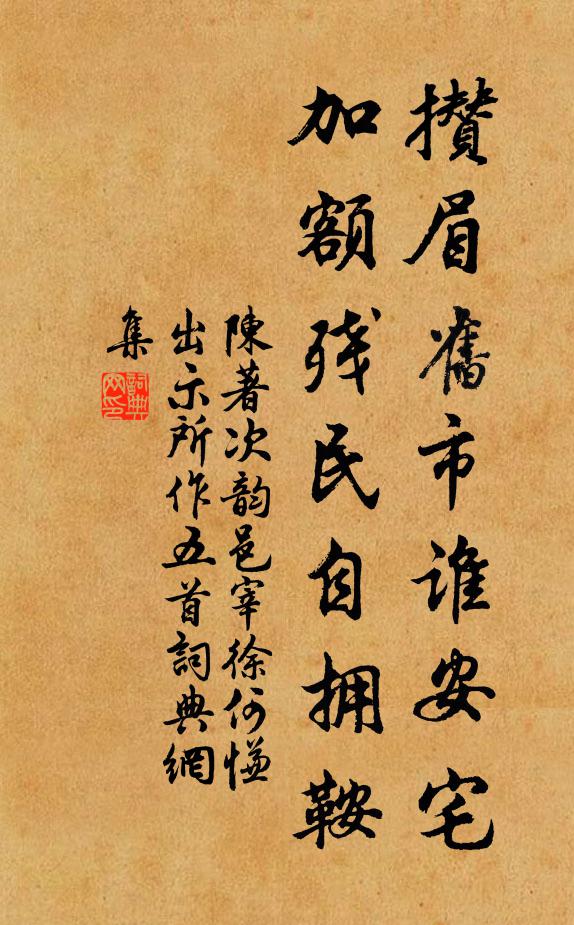 攢眉舊市誰安宅
加額残民自拥鞍
陳著次韵邑宰徐何慊
出示所作五首詞典網
集
詞典
网印